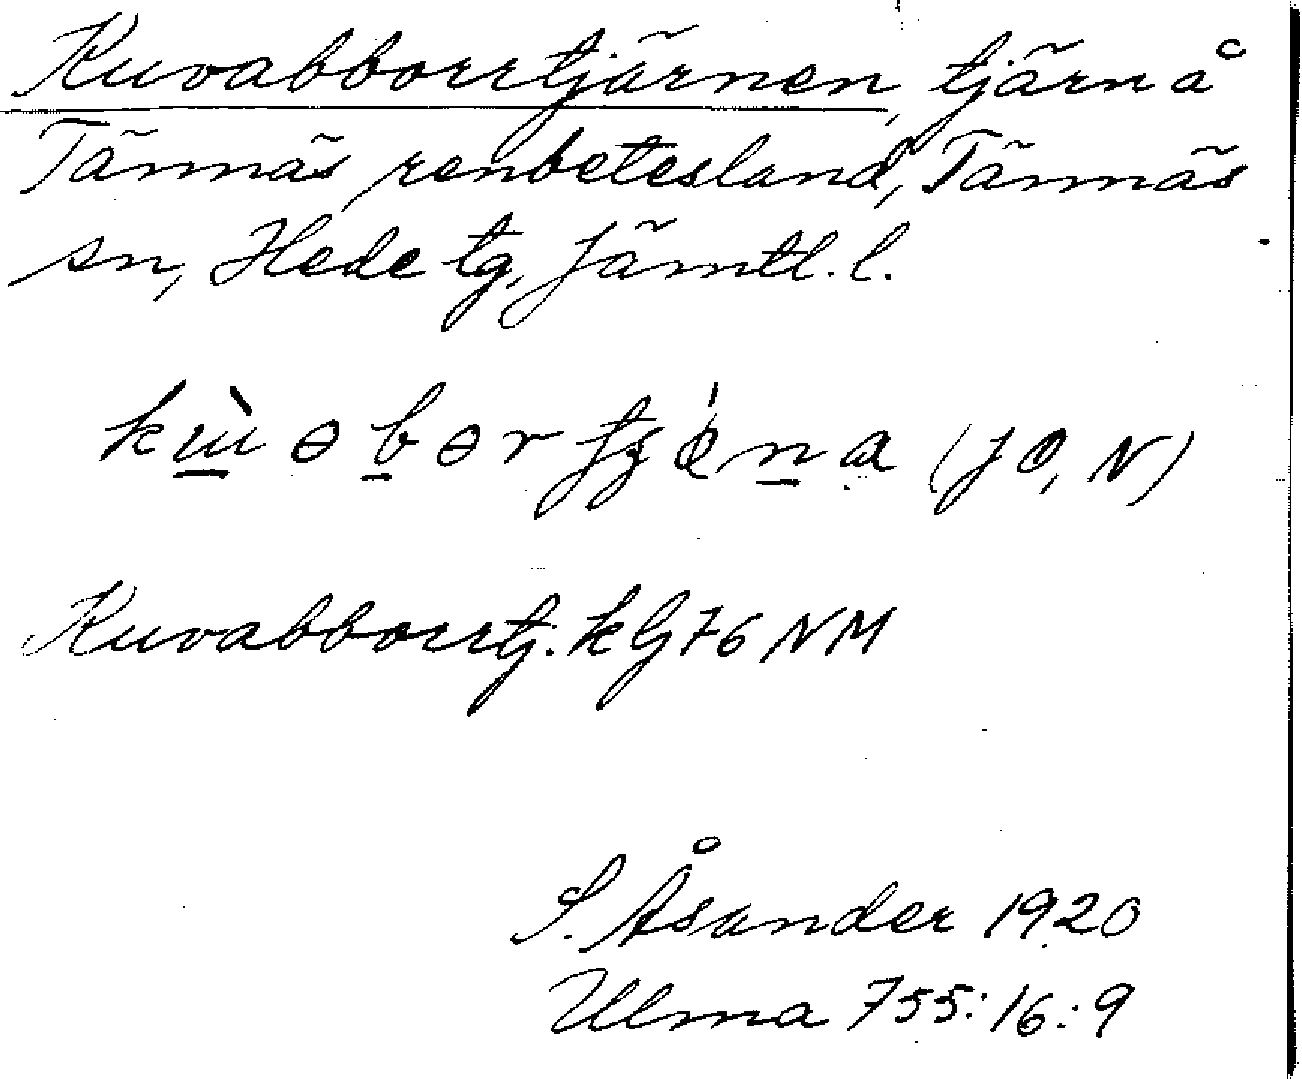 Kuvabborrtjärnen, tjärn å
Tännäs renbetesland, Tännäs
sn, Hede tg, Jämtl. l.
(JO, N)
Kuvabborrtj. kG76NM
S. Åsander 1920
Ulma 755:16:9